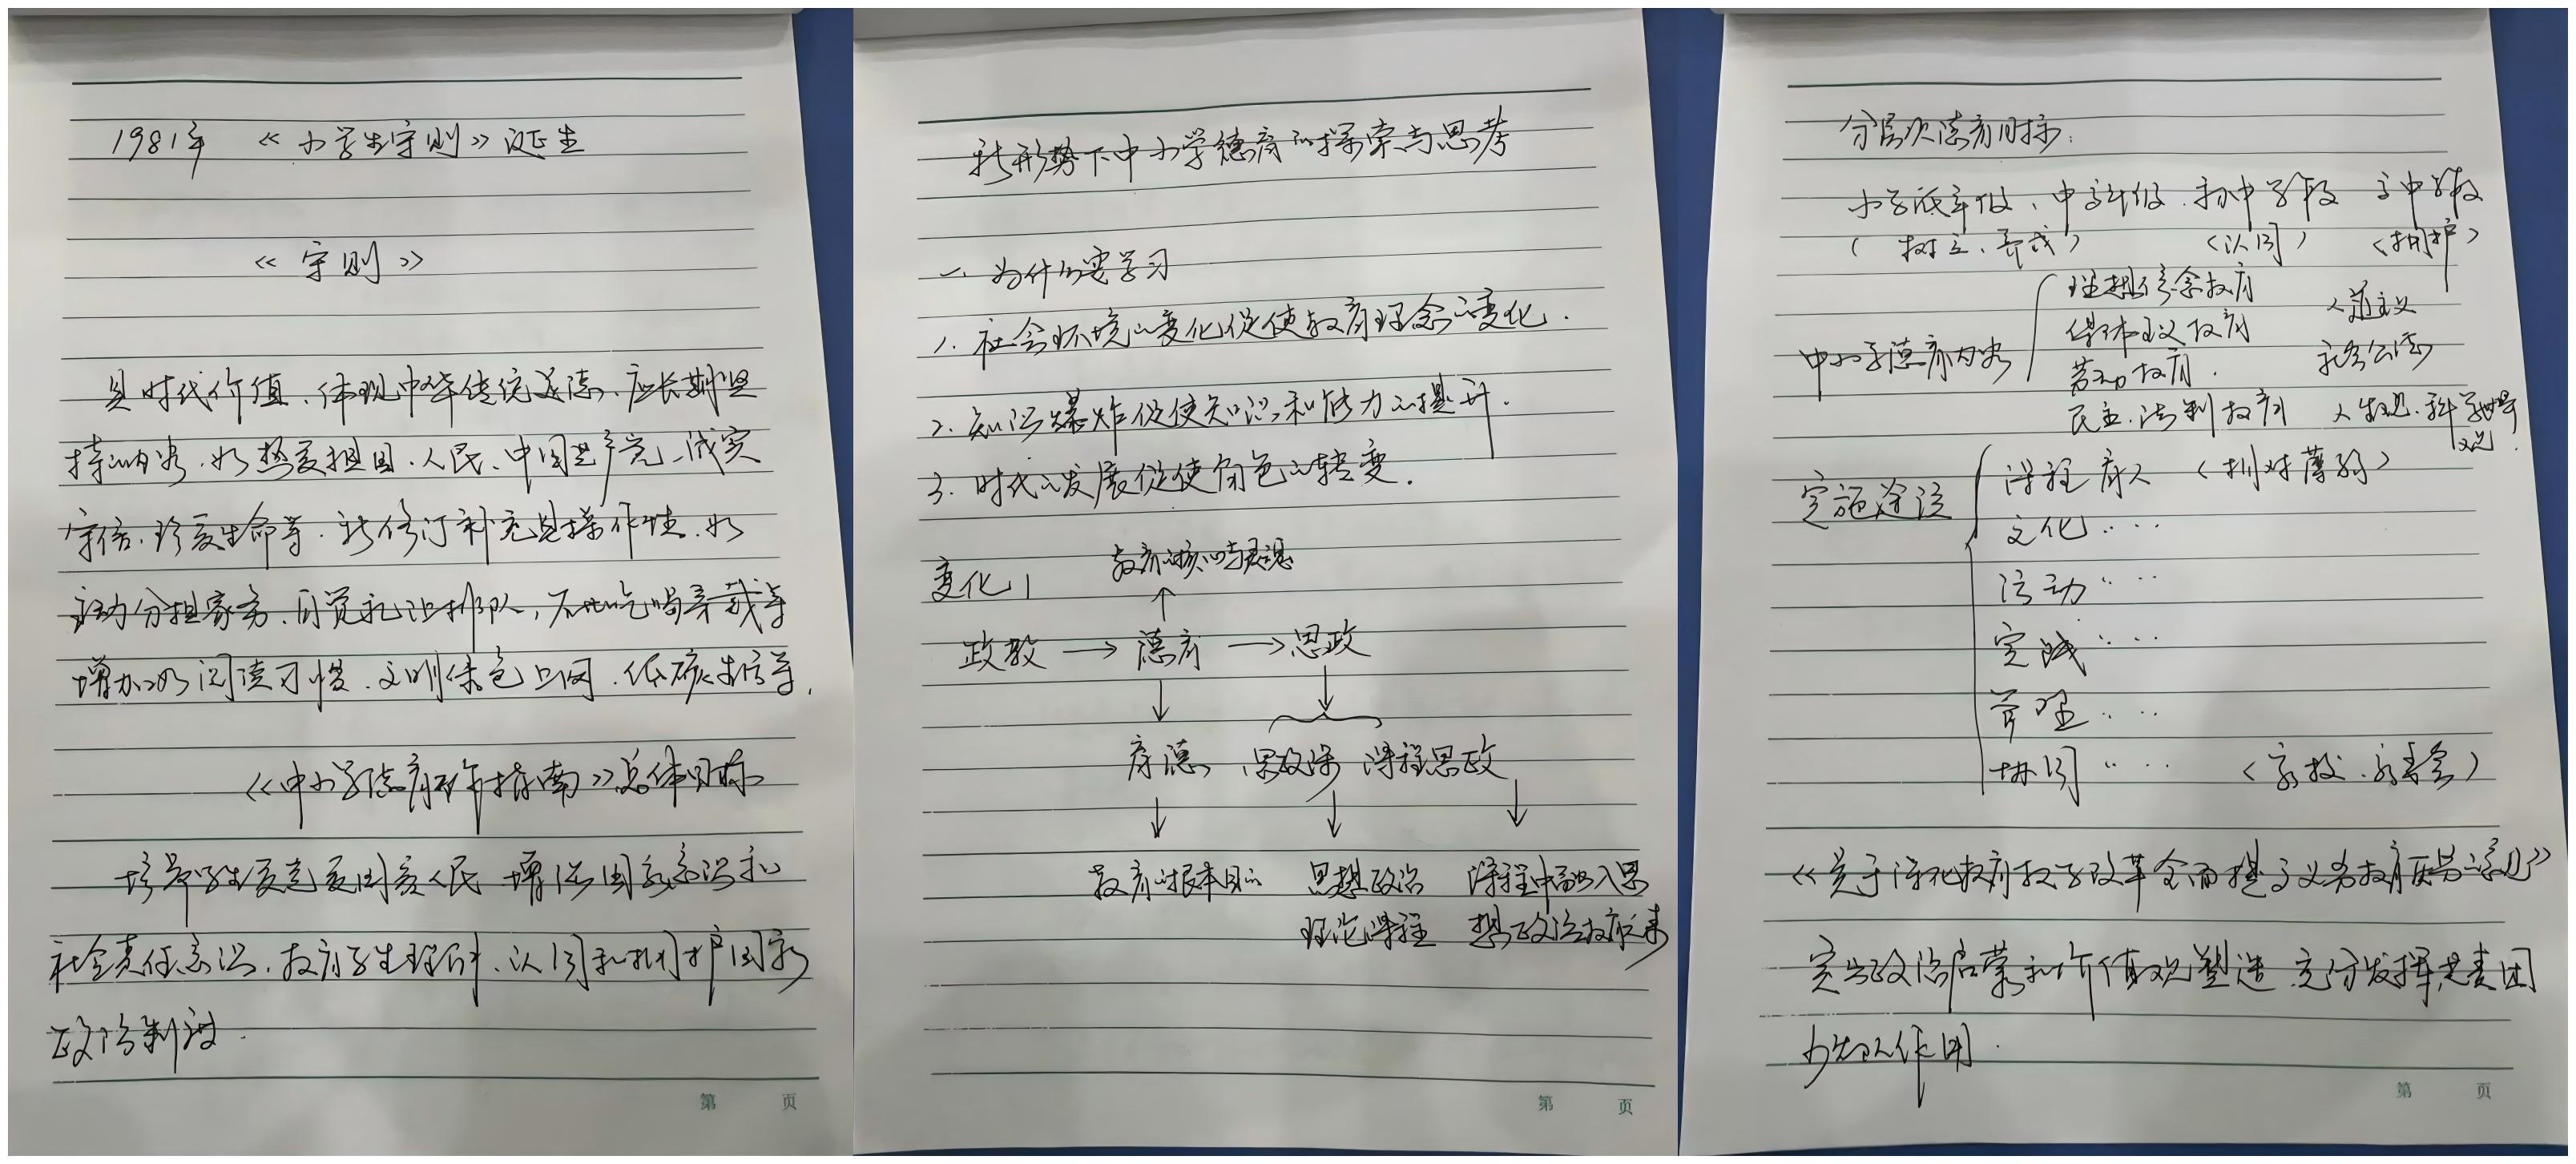 1981年 《小学生守则》诞生
《守则》
具时代价值、体现中华传统美德、应长期坚
持的内容，如热爱祖国、人民、中国共产党、诚实
守信、珍爱生命等．新修订补充具操作性．如
主动分担家务、自觉礼让排队，不比吃喝穿戴等
增加如阅读习惯、文明绿色上网、低碳生活等．
《中小学德育工作指南》总体目标
培养学生爱党爱国爱人民 增强国家意识和
社会责任意识，教育学生理解、认同和拥护国家
政治制度．
第 页
新形势下中小学德育的探索与思考
一、为什么要学习
1. 社会环境的变化促使教育理念的变化．
2. 知识爆炸促使知识和能力的提升．
3. 时代的发展促使角色的转变．
教育的核心与灵魂
变化1
↑
政教 → 德育 → 思政
↓ ↓
育德 思政课 课程思政
↓ ↓ ↓
教育的根本目的 思想政治 课程中融入思
理论课程 想政治教育元素
第 页
分层次德育目标：
小学低年级、中高年级、初中学段 高中学段
（树立、养成） （认同） （拥护）
理想信念教育 人道主义
集体主义教育 社会公德
中小学德育内容
劳动教育．
民主、法制教育 人生观、科学世界
观．
实施途径
课程育人 （针对薄弱）
文化……
活动……
实践……
管理……
协同…… （家校、家委会）
《关于深化教育教学改革全面提高义务教育质量的意见》
突出政治启蒙和价值观塑造 充分发挥共青团
少先队作用．
第 页